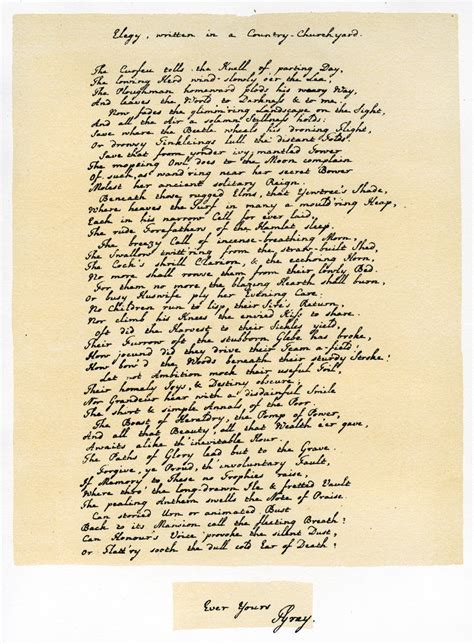 Elegy, written in a Country-Churchyard.
The Curfeu tolls the Knell of parting Day,
The lowing Herd wind slowly o'er the Lea,
The Ploughman homeward plods his weary Way,
And leaves the World to Darkness & to me.
Now fades the glimm'ring Landscape on the Sight,
And all the Air a solemn Stillness holds;
Save where the Beetle wheels his droning Flight,
Or drowsy Tinkleings lull the distant Folds.
Save that from yonder ivy-mantled Tower
The mopeing Owl does to the Moon complain
Of such, as wand'ring near her secret Bower
Molest her ancient solitary Reign.
Beneath those rugged Elms, that Yewtree's Shade,
Where heaves the Turf in many a mould'ring Heap,
Each in his narrow Cell for ever laid,
The rude Forefathers of the Hamlet sleep.
The breezy Call of incense-breathing Morn,
The Swallow twitt'ring from the straw-built Shed,
The Cock's shrill Clarion, & the ecchoing Horn,
No more shall rouse them from their lowly Bed.
For them no more the blazing Hearth shall burn,
Or busy Huswife ply her Evening Care:
No Children run to lisp their Sire's Return,
Nor climb his Knees the envied Kiss to share.
Oft did the Harvest to their Sickles yield,
Their Furrow oft the stubborn Glebe has broke,
How jocund did they drive their Team a-field!
How bow'd the Woods beneath their sturdy Stroke!
Let not Ambition mock their useful Toil,
Their homely Joys, & Destiny obscure;
Nor Grandeur hear with a disdainful Smile
The short & simple Annals of the Poor.
The Boast of Heraldry, the Pomp of Power,
And all that Beauty, all that Wealth e'er gave,
Awaits alike th' inevitable Hour.
The Paths of Glory lead but to the Grave.
Forgive, ye Proud, th' involuntary Fault,
If Memory to These no Trophies raise,
Where thro' the long-drawn Ile & fretted Vault
The pealing Anthem swells the Note of Praise.
Can storied Urn or animated Bust
Back to its Mansion call the fleeting Breath?
Can Honour's Voice provoke the silent Dust,
Or Flatt'ry sooth the dull cold Ear of Death?
Ever Yours
TGray.